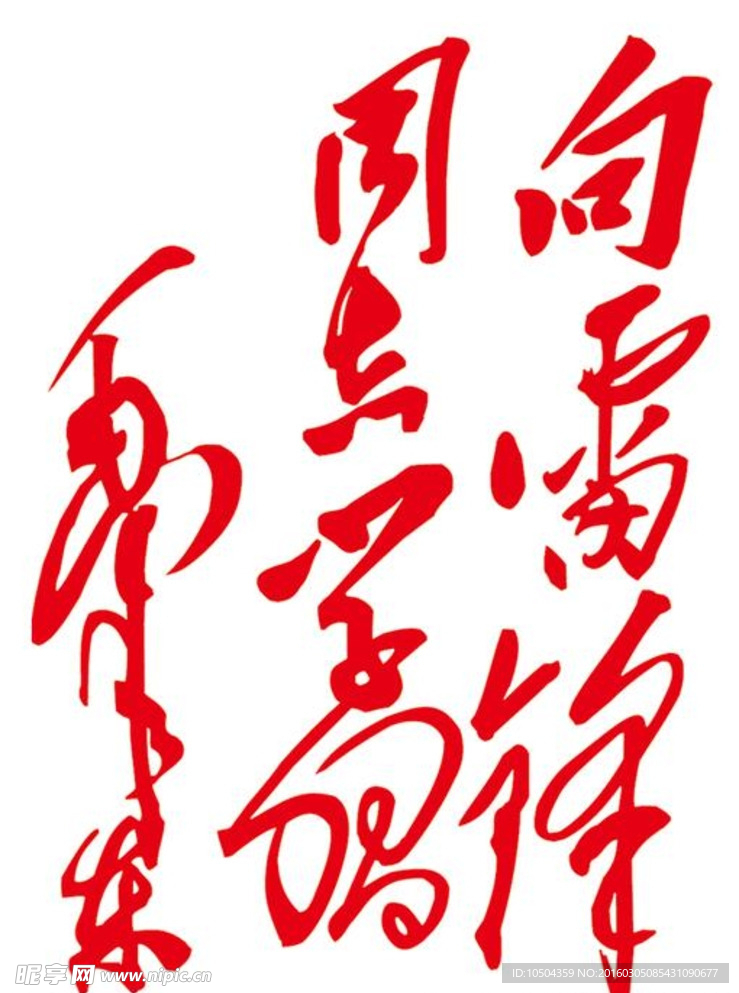 向雷锋
同志学习
毛泽东
昵享网 www.nipic.cn
ID:10504359 NO:20160305085431090677